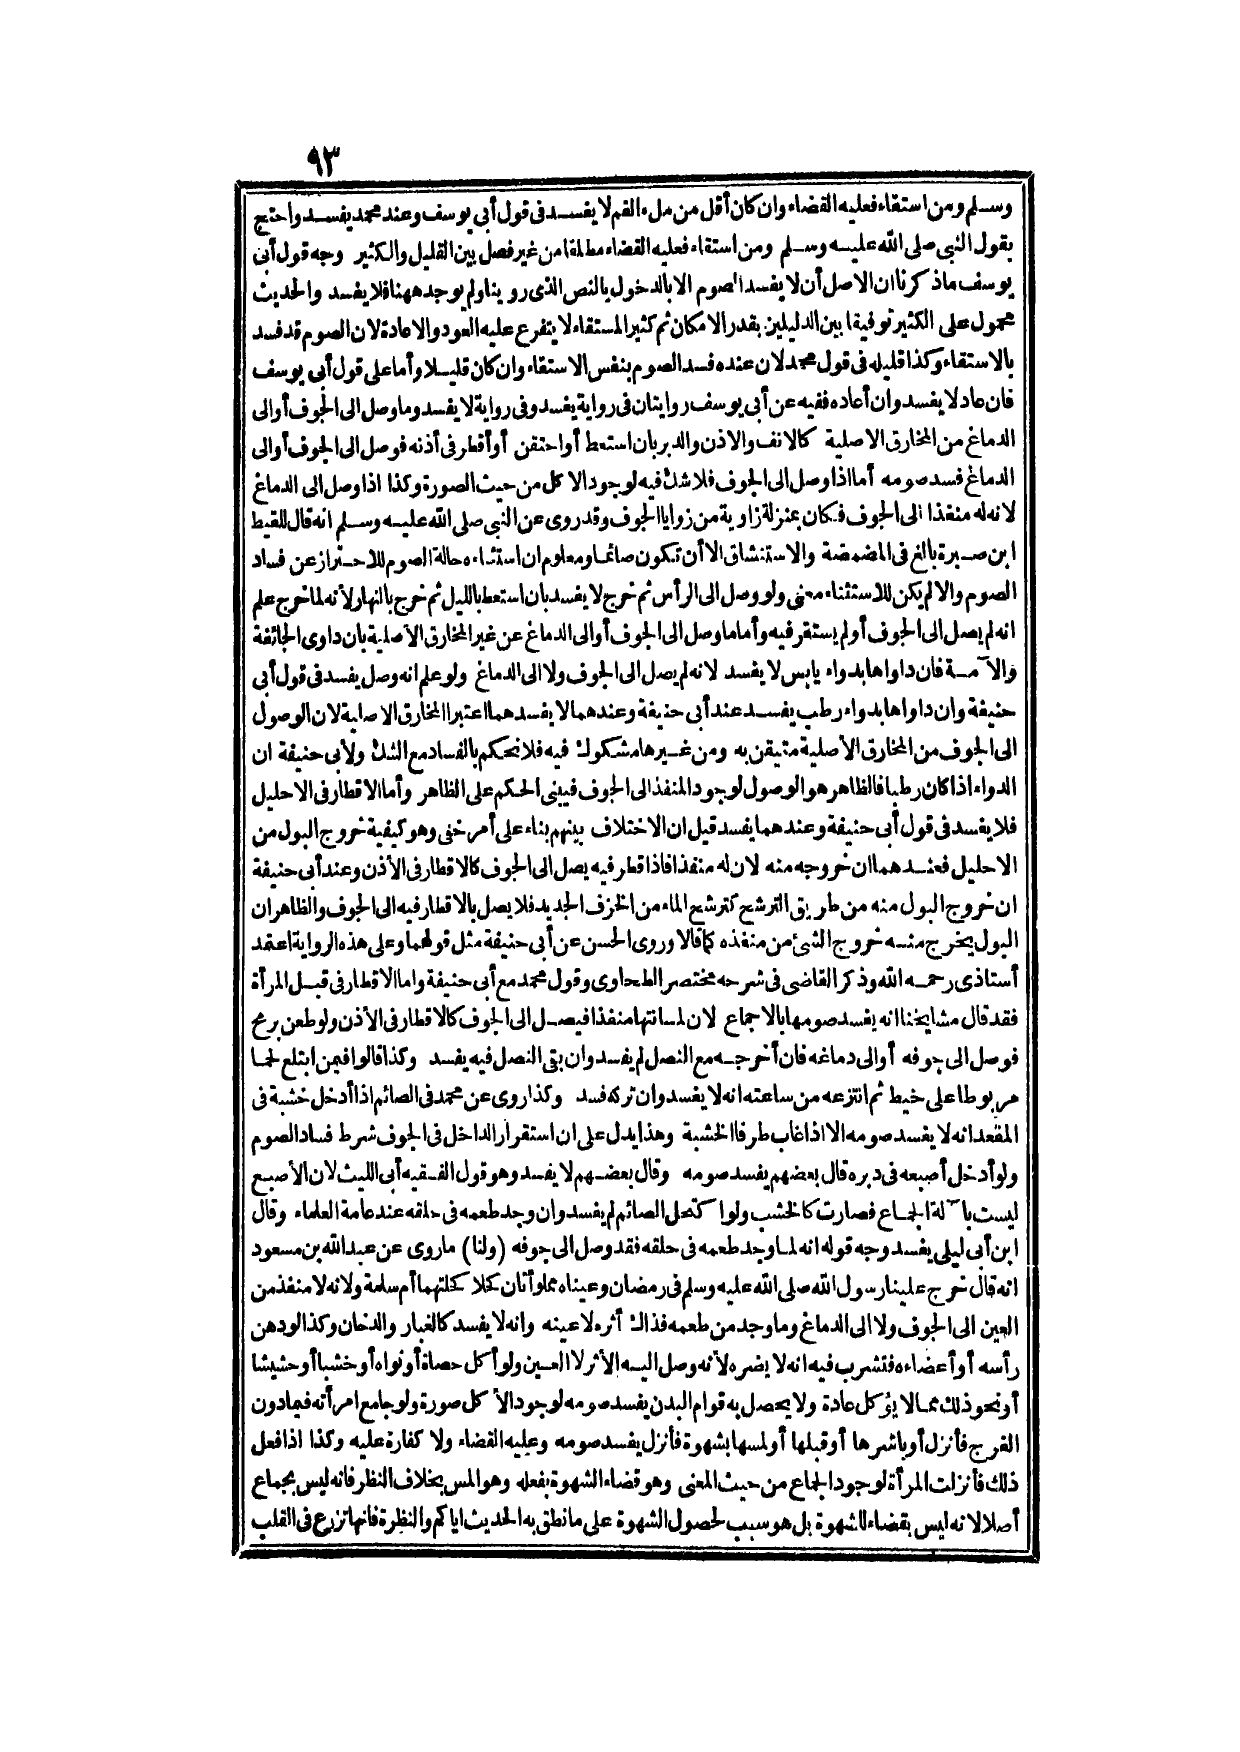 ٩٣
وسلم ومن استقاء فعليه القضاء وان كان أقل من ملء الفم لا يفسد فى قول أبى يوسف وعند محمد يفسد واحتج
بقول النبى صلى الله عليه وسلم ومن استقاء فعليه القضاء مطلقا من غير فصل بين القليل والكثير وجه قول أبى
يوسف ماذكرنا ان الاصل أن لا يفسد الصوم الا بالدخول بالنص الذى روينا ولم يوجد ههنا فلا يفسد والحديث
محمول على الكثير توفيقا بين الدليلين بقدر الامكان ثم كثير المستقاء لا يتفرع عليه العود والاعادة لان الصوم قد فسد
بالاستقاء وكذا قليله فى قول محمد لان عنده فسد الصوم بنفس الاستقاء وان كان قليلا وأما على قول أبى يوسف
فان عاد لا يفسد وان أعاده ففيه عن أبى يوسف روايتان فى رواية يفسد وفى رواية لا يفسد وما وصل الى الجوف أو الى
الدماغ من المخارق الاصلية كالانف والاذن والدبر بان استعط أو احتقن أو أقطر فى أذنه فوصل الى الجوف أو الى
الدماغ فسد صومه أما اذا وصل الى الجوف فلا شك فيه لوجود الاكل من حيث الصورة وكذا اذا وصل الى الدماغ
لانه له منفذا الى الجوف فكان بمنزلة زاوية من زوايا الجوف وقد روى عن النبى صلى الله عليه وسلم انه قال للقيط
ابن صبرة بالغ فى المضمضة والاستنشاق الا أن تكون صائما ومعلوم ان استثناءه حالة الصوم للاحتراز عن فساد
الصوم والا لم يكن للاستثناء معنى ولو وصل الى الرأس ثم خرج لا يفسد بان استعط بالليل ثم خرج بالنهار لأنه لما خرج علم
انه لم يصل الى الجوف أو لم يستقر فيه وأما ما وصل الى الجوف أو الى الدماغ عن غير المخارق الأصلية بان داوى الجائفة
والآمة فان داواها بدواء يابس لا يفسد لانه لم يصل الى الجوف ولا الى الدماغ ولو علم انه وصل يفسد فى قول أبى
حنيفة وان داواها بدواء رطب يفسد عند أبى حنيفة وعندهما لا يفسد هما اعتبرا المخارق الاصلية لان الوصول
الى الجوف من المخارق الأصلية متيقن به ومن غيرها مشكوك فيه فلا نحكم بالفساد مع الشك ولأبى حنيفة ان
الدواء اذا كان رطبا فالظاهر هو الوصول لوجود المنفذ الى الجوف فيبنى الحكم على الظاهر وأما الاقطار فى الاحليل
فلا يفسد فى قول أبى حنيفة وعندهما يفسد قيل ان الاختلاف بينهم بناء على أمر خفى وهو كيفية خروج البول من
الاحليل فعندهما ان خروجه منه لان له منفذا فاذا قطر فيه يصل الى الجوف كالاقطار فى الأذن وعند أبى حنيفة
ان خروج البول منه من طريق الترشح كترشح الماء من الخزف الجديد فلا يصل بالاقطار فيه الى الجوف والظاهر ان
البول يخرج منه خروج الشئ من منفذه كما قالا وروى الحسن عن أبى حنيفة مثل قولهما وعلى هذه الرواية اعتمد
أستاذى رحمه الله وذكر القاضى فى شرحه مختصر الطحاوى وقول محمد مع أبى حنيفة واما الاقطار فى قبل المرأة
فقد قال مشايخنا انه يفسد صومها بالاجماع لان لمسانتها منفذا فيصل الى الجوف كالاقطار فى الأذن ولو طعن برمح
فوصل الى جوفه أو الى دماغه فان أخرجه مع النصل لم يفسد وان بقى النصل فيه يفسد وكذا قالوا فيمن ابتلع لحما
مربوطا على خيط ثم انتزعه من ساعته انه لا يفسد وان تركه فسد وكذا روى عن محمد فى الصائم اذا أدخل خشبة فى
المقعد انه لا يفسد صومه الا اذا غاب طرفا الخشبة وهذا يدل على ان استقرار الداخل فى الجوف شرط فساد الصوم
ولو أدخل أصبعه فى دبره قال بعضهم يفسد صومه وقال بعضهم لا يفسد وهو قول الفقيه أبى الليث لان الأصبع
ليست بآلة الجماع فصارت كالخشب ولو اكتحل الصائم لم يفسد وان وجد طعمه فى حلقه عند عامة العلماء وقال
ابن أبى ليلى يفسد وجه قوله انه لما وجد طعمه فى حلقه فقد وصل الى جوفه (ولنا) ماروى عن عبد الله بن مسعود
انه قال خرج علينا رسول الله صلى الله عليه وسلم فى رمضان وعيناه مملوأتان كحلا كحلتهما أم سلمة ولانه لا منفذ من
العين الى الجوف ولا الى الدماغ وما وجد من طعمه فذاك أثره لا عينه وانه لا يفسد كالغبار والدخان وكذا لو دهن
رأسه أو أعضاءه فتشرب فيه انه لا يضره لأنه وصل اليه الأثر لا العين ولو أكل حصاة أو نواه أو خشبا أو حشيشا
أو نحو ذلك مما لا يؤكل عادة ولا يحصل به قوام البدن يفسد صومه لوجود الأكل صورة ولو جامع امرأته فيما دون
الفرج فأنزل أو باشرها أو قبلها أو لمسها بشهوة فأنزل يفسد صومه وعليه القضاء ولا كفارة عليه وكذا اذا فعل
ذلك فأنزلت المرأة لوجود الجماع من حيث المعنى وهو قضاء الشهوة بفعله وهو المس بخلاف النظر فانه ليس بجماع
أصلا لانه ليس بقضاء للشهوة بل هو سبب لحصول الشهوة على ما نطق به الحديث اياكم والنظرة فانها تزرع فى القلب